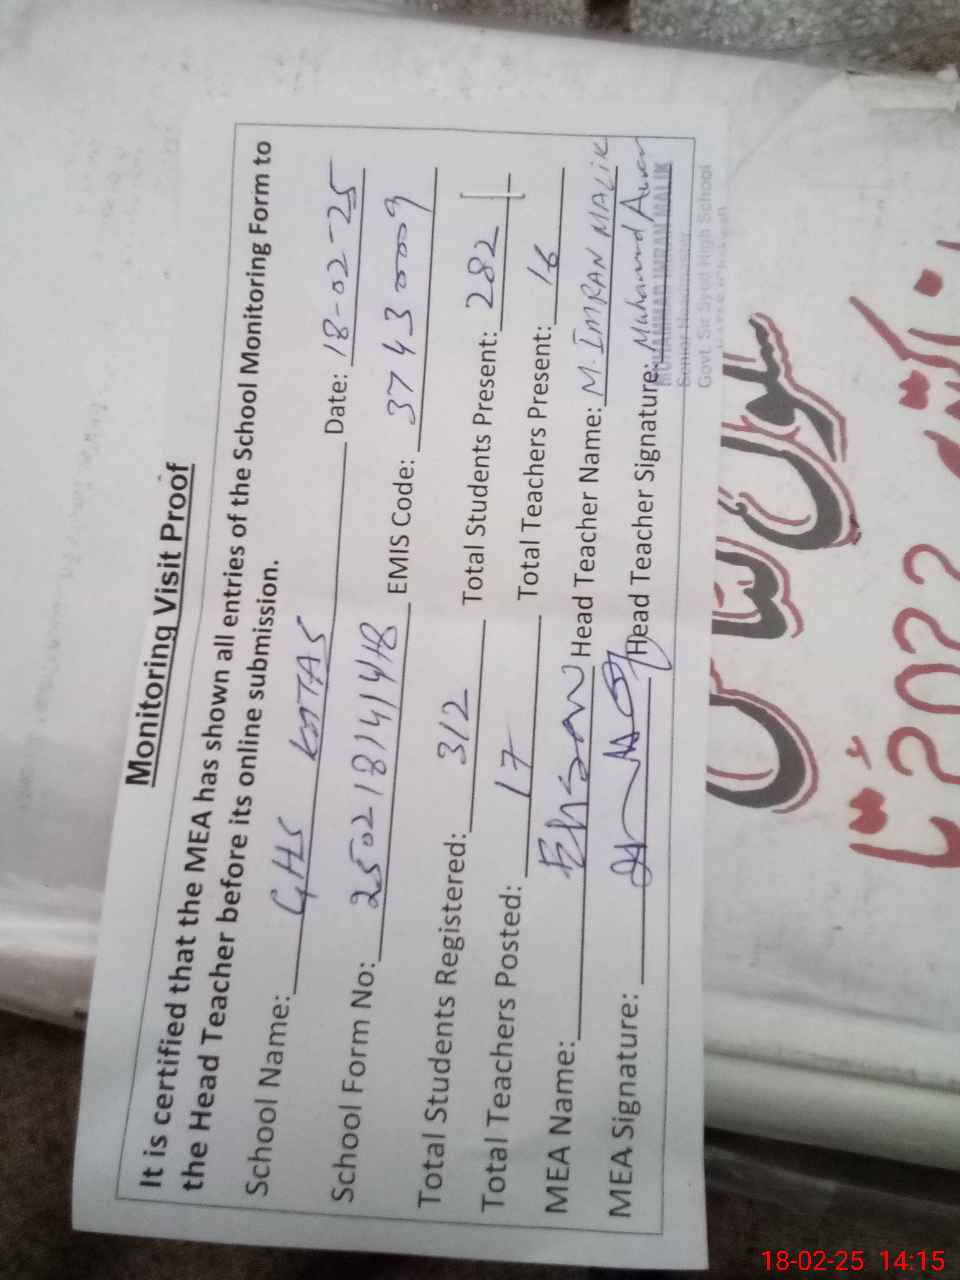 Monitoring Visit Proof
It is certified that the MEA has shown all entries of the School Monitoring Form to
the Head Teacher before its online submission.
School Name: GHS KOTAS Date: 18-02-25
School Form No: 250218141448 EMIS Code: 37430009
Total Students Registered: 312 Total Students Present: 282
Total Teachers Posted: 17 Total Teachers Present: 16
MEA Name: Ehsan Head Teacher Name: M. IMRAN MALIK
MEA Signature: Head Teacher Signature: Muhammad
MUHAMMAD IMRAN MALIK
Senior Headmaster
Govt. Sir Syed High School
18-02-25 14:15